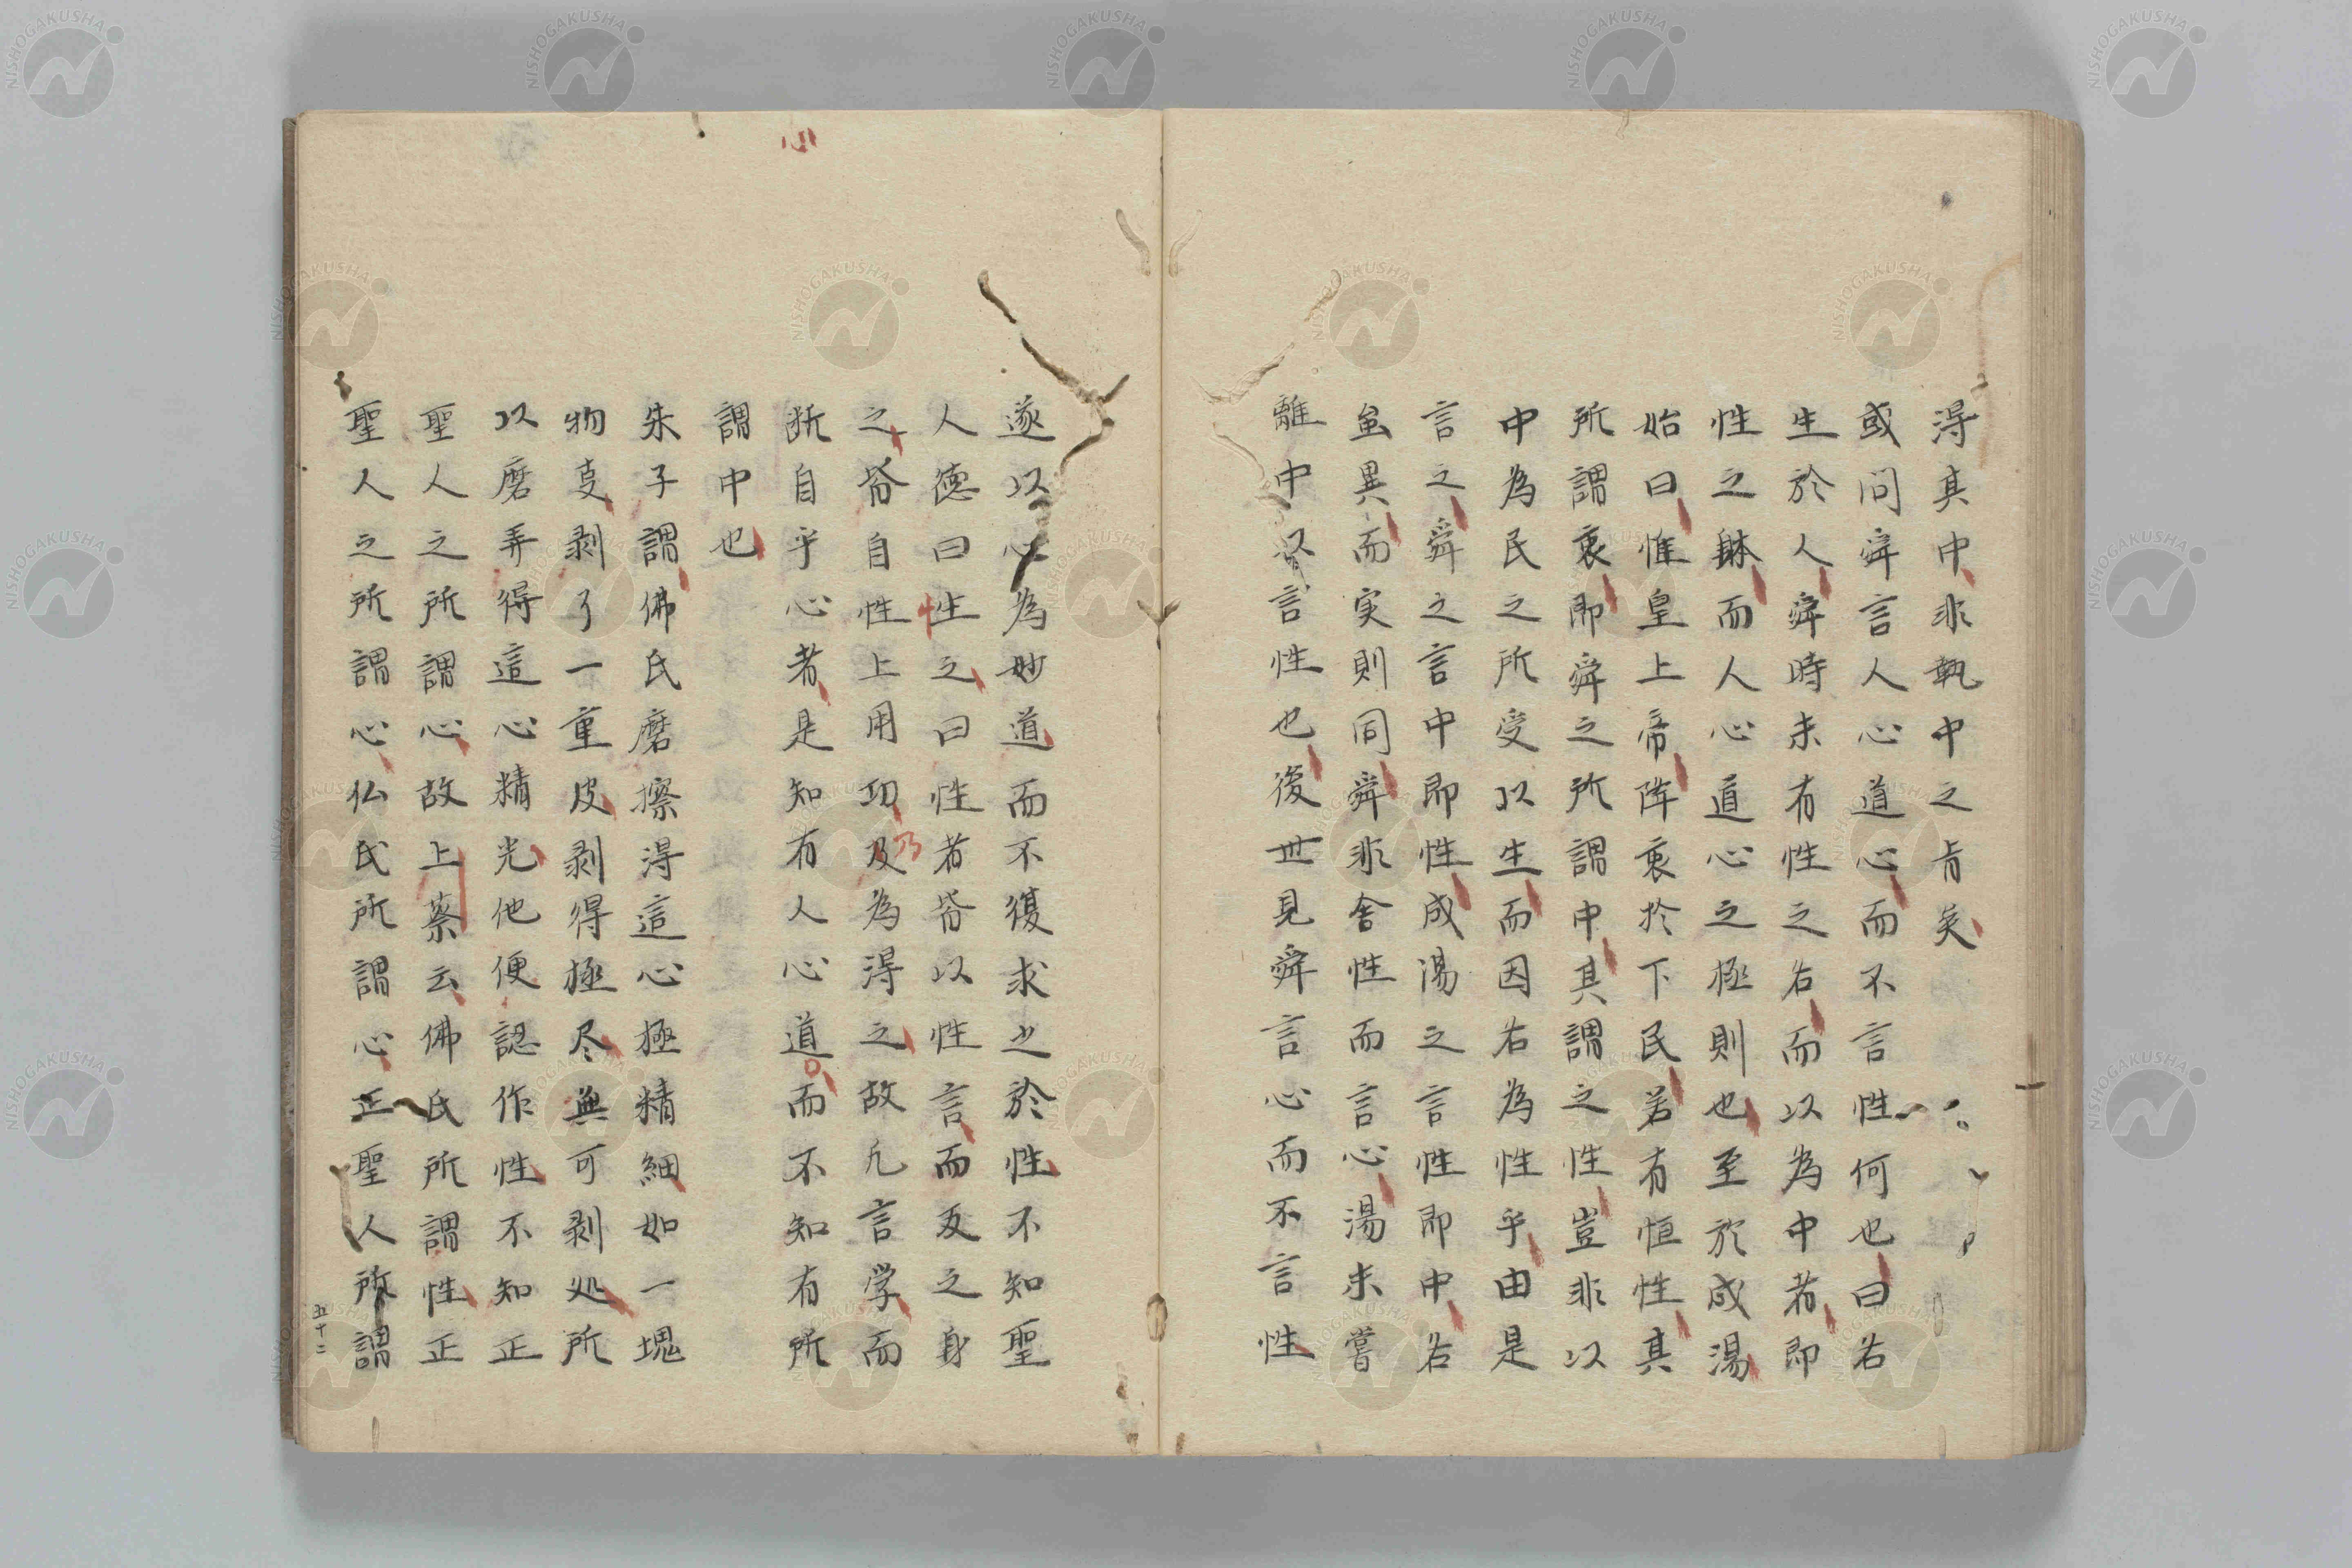 得其中非執中之肯矣
或問舜言人心道心而不言性何也曰名
生於人舜時未有性之名而以為中者即
性之躰而人心道心之極則也至於成湯
始曰惟皇上帝降衷於下民若有恒性其
所謂衷即舜之所謂中其謂之性豈非以
中為民之所受以生而因名為性乎由是
言之舜之言中即性成湯之言性即中名
虽異而実則同舜非舍性而言心湯未嘗
離中以言性也後世見舜言心而不言性
遂以心為妙道而不復求之於性不知聖
人徳曰性之曰性者皆以性言而反之身
之皆自性上用功及為得之故凡言学而
断自乎心者是知有人心道而不知有所
謂中也
朱子謂佛氏磨擦得這心極精細如一塊
物支剥了一重皮剥得極尽無可剥処所
以磨弄得這心精光他便認作性不知正
聖人之所謂心故上蔡云佛氏所謂性正
聖人之所謂心仏氏所謂心正聖人所謂
心
乃
五十二
NISHOGAKUSHA